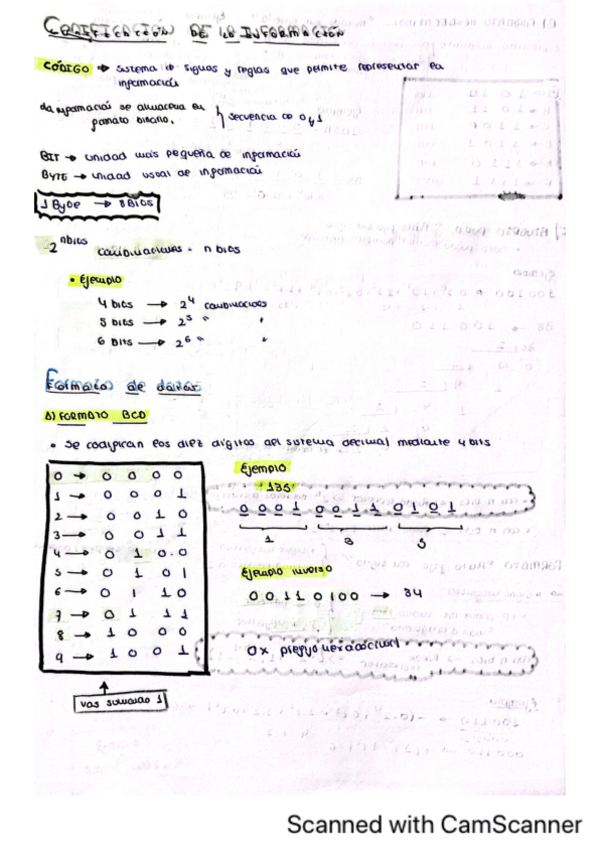 CODIFICACIÓN DE LA INFORMACIÓN
CÓDIGO → Sistema de signos y reglas que permite representar la
información
La información se almacena en
formato binario. secuencia de 0 y 1
BIT → unidad más pequeña de información
BYTE → unidad usual de información
1 Byte → 8 Bits
2 nbits combinaciones - n bits
• Ejemplo
4 bits → 2⁴ combinaciones
5 bits → 2⁵ " "
6 bits → 2⁶ " "
Formatos de datos
A) FORMATO BCD
• Se codifican los diez dígitos del sistema decimal mediante 4 bits
0 → 0 0 0 0
1 → 0 0 0 1
2 → 0 0 1 0
3 → 0 0 1 1
4 → 0 1 0 0
5 → 0 1 0 1
6 → 0 1 1 0
7 → 0 1 1 1
8 → 1 0 0 0
9 → 1 0 0 1
vas sumando 1
Ejemplo
"135"
0 0 0 1 0 0 1 1 0 1 0 1
1 3 5
Ejemplo inverso
0 0 1 1 0 1 0 0 → 34
0x prefijo hexadecimal
Scanned with CamScanner